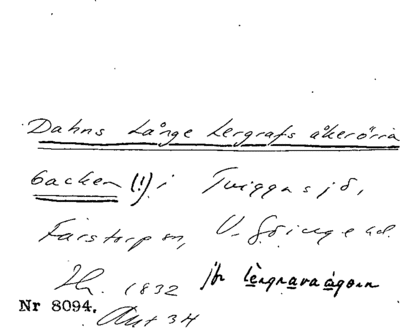 Dahns Långe Lergrafs åkerörria
backen (!) i Tviggasjö,
Färstorp sn, V. Göinge hd.
Zh. 1832 jfr lèrgravaàgorn
Nr 8094. Akt 34